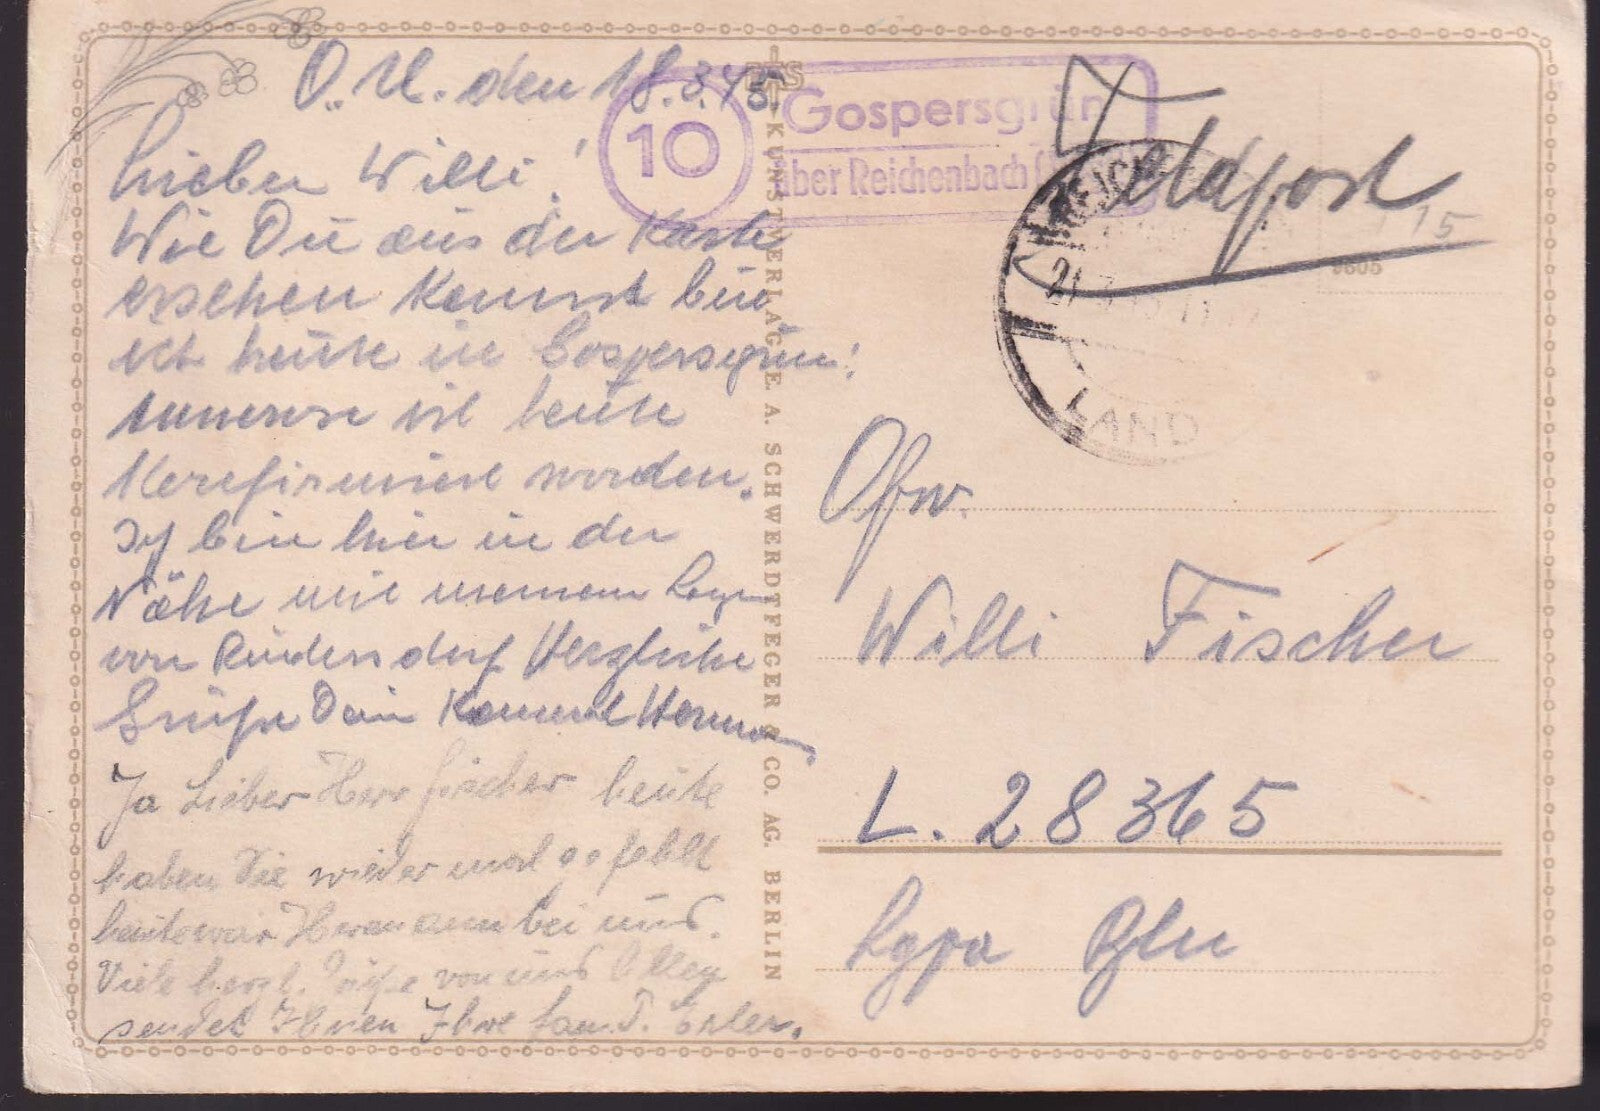 O. U. den 18.3.45.
Lieber Willi!
Wie Du aus der Karte
ersehen kannst bin
ich heute in Gospersgrün!
Annerose ist heute
Konfirmiert worden.
Ich bin hier in der
Nähe mit meinem
von Herzliche
Grüße Dein Kamerad Hermann
Ja Lieber Herr Fischer heute
haben Sie wieder mal gefehlt
heute war Hermann bei uns.
Viele herzl. Grüße von uns Allen
sendet Ihnen Ihre Fam. Erler.
10
Gospersgrün
über Reichenbach
KUNSTVERLAG E. A. SCHWERDTFEGER & CO. AG. BERLIN
Feldpost
LAND
9605
Ofw.
Willi Fischer
L. 28365
Lgpa